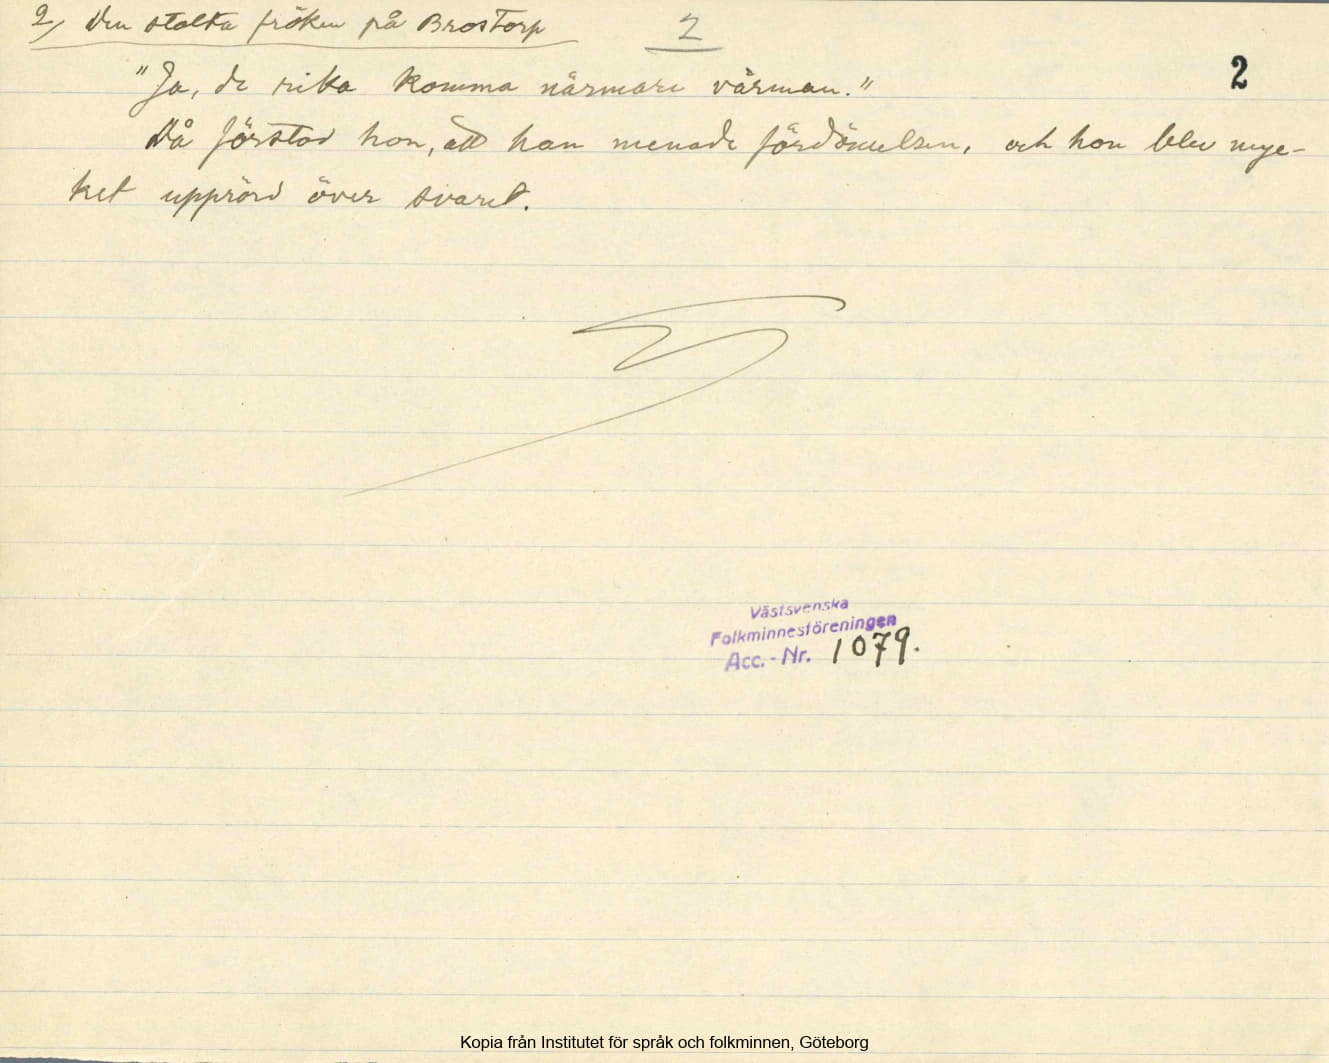 2) Den stolta fröken på Brostorp
2
2
"Ja, de rika komma närmare värman."
Då förstod hon, att han menade fördömelsen, och hon blev myc-
ket upprörd över svaret.
Västsvenska
Folkminnesföreningen
Acc.-Nr. 1079.
Kopia från Institutet för språk och folkminnen, Göteborg